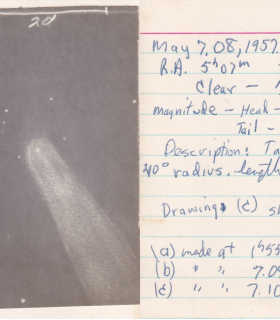 20
May 7.08, 1957
R.A. 5ʰ07ᵐ
Clear -
magnitude - Head -
Tail -
Description: Ta
40° radius. length
Drawings (c) s
(a) made at 1ʰ55
(b) " " 7.09
(c) " " 7.10